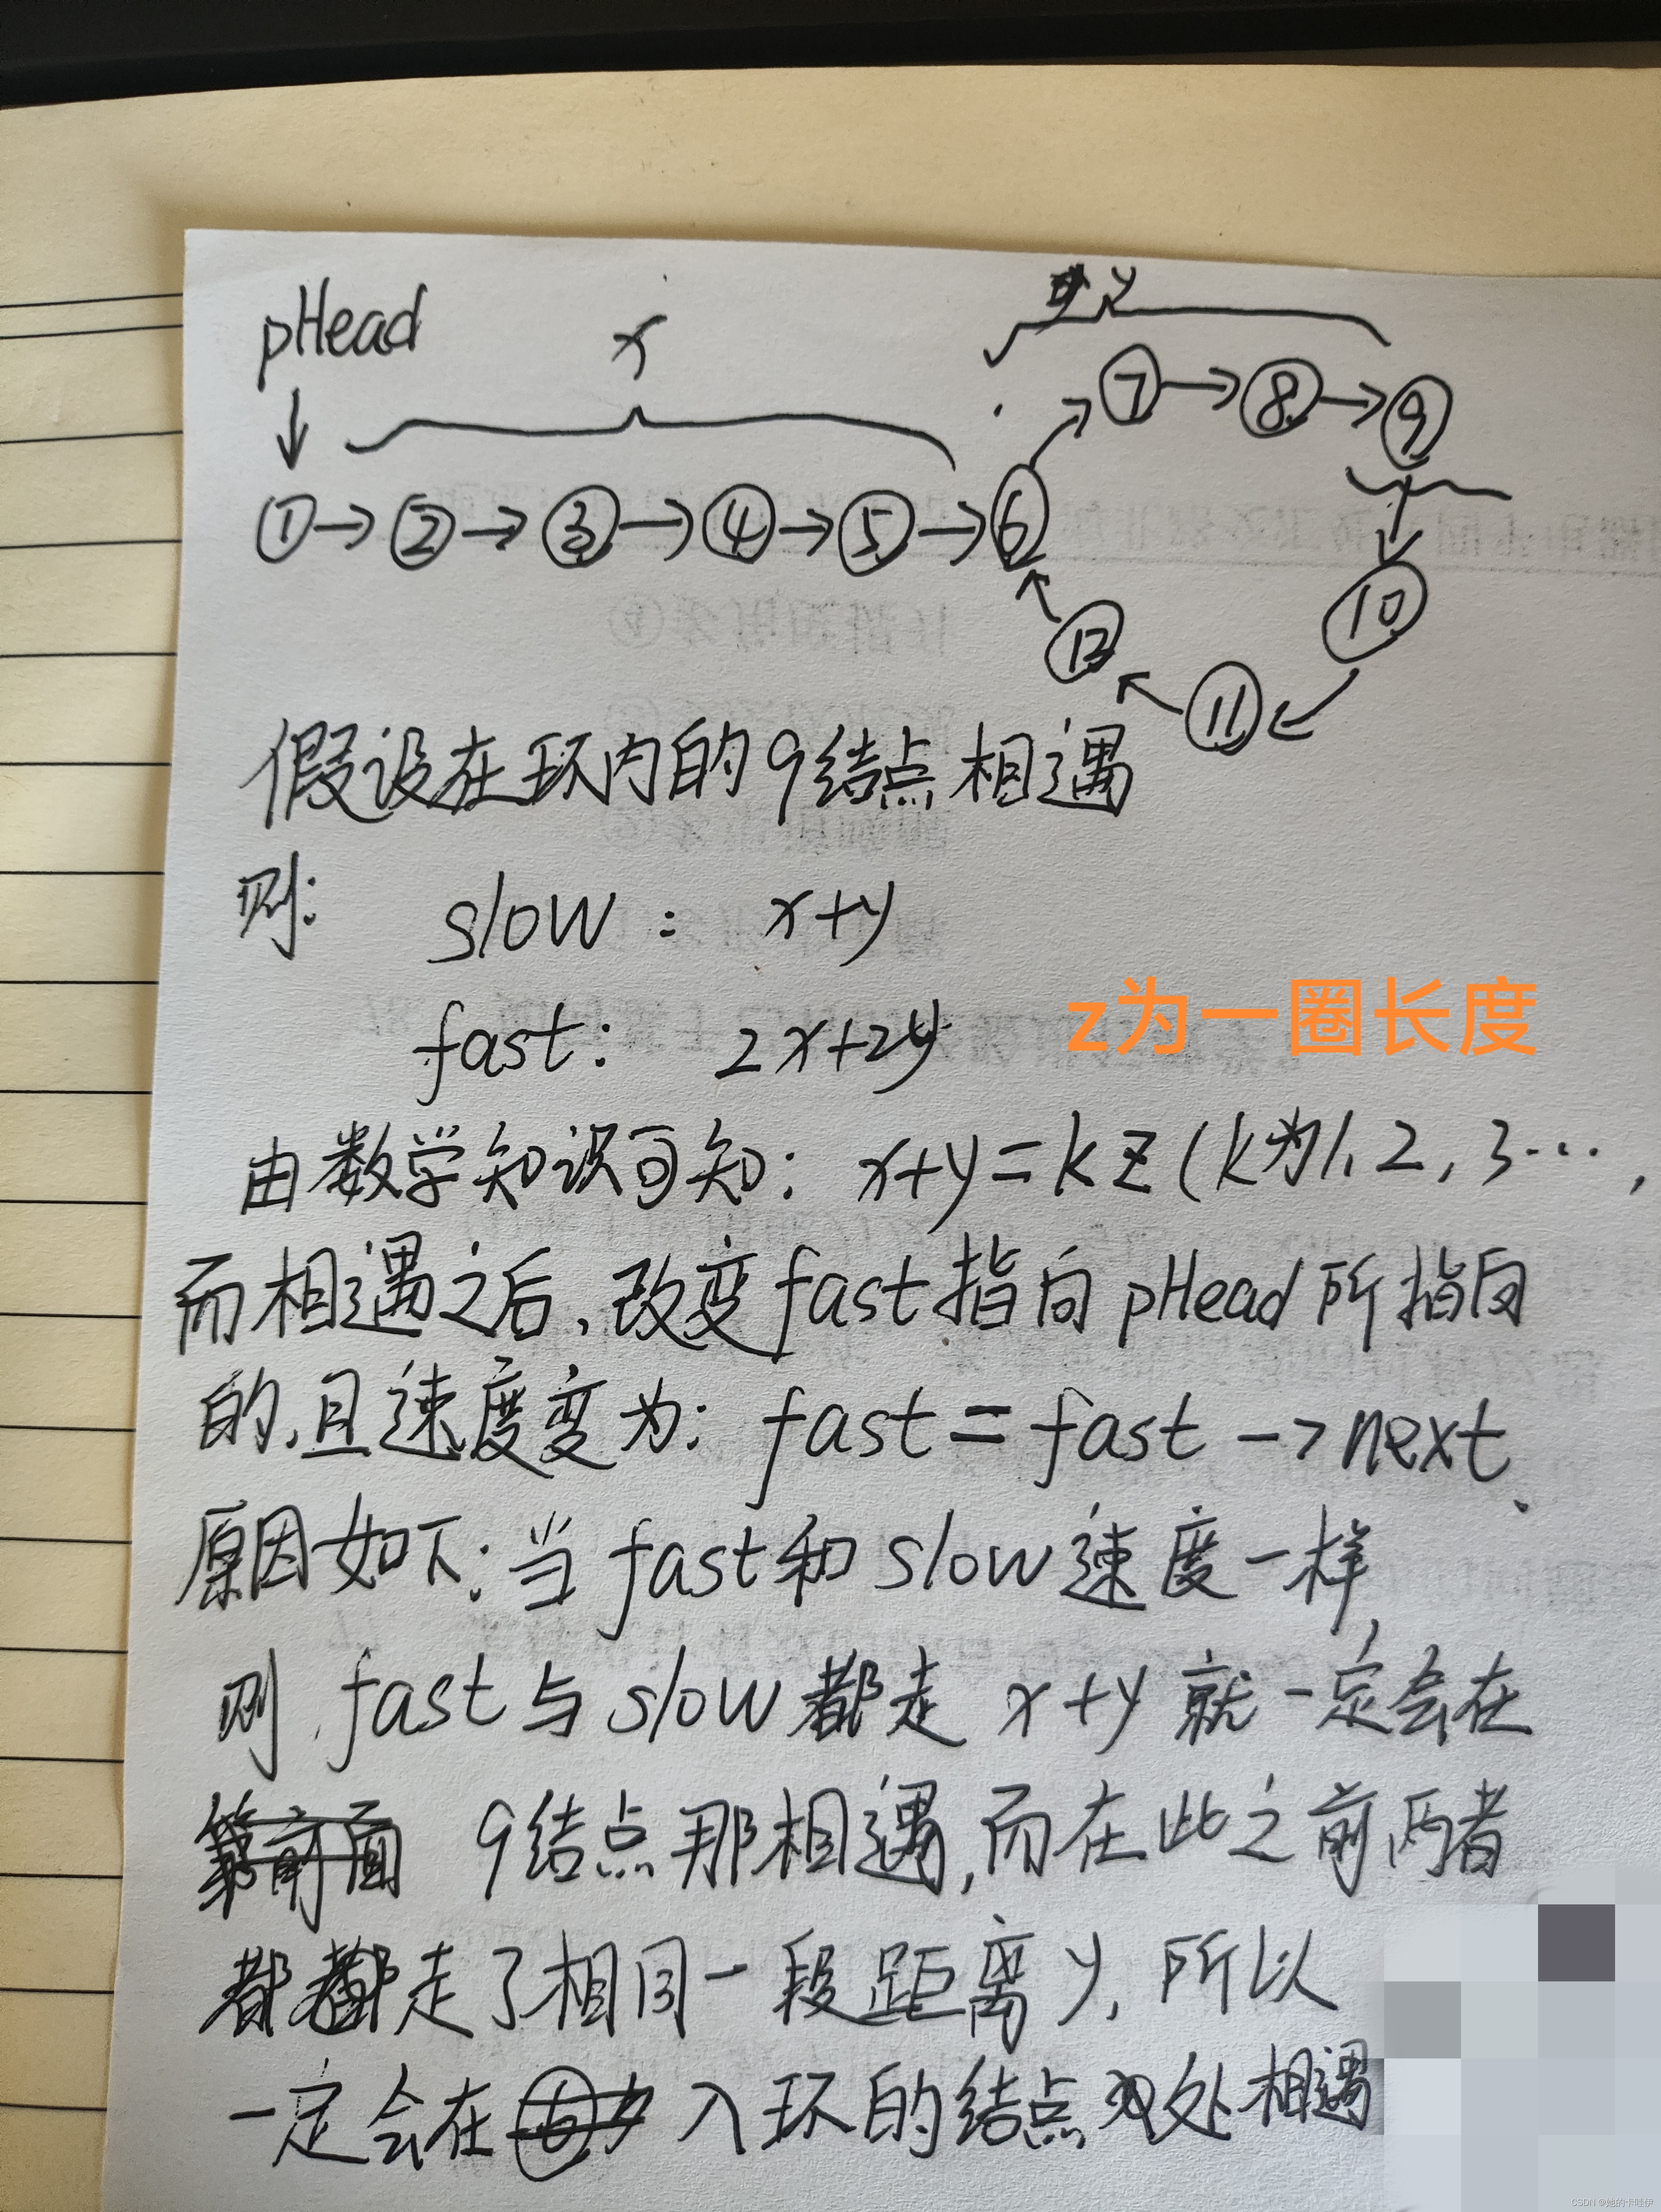 pHead
x
y
①→②→③→④→⑤→⑥
⑦→⑧→⑨
⑩
⑪
⑫
假设在环内的9结点相遇
则: slow: x+y
fast: 2x+2y
z为一圈长度
由数学知识可知: x+y=kz(k为1、2,3…,
而相遇之后,改变fast指向pHead所指向
的,且速度变为: fast=fast→next.
原因如下:当fast和slow速度一样,
则fast与slow都走x+y就一定会在
9结点那相遇,而在此之前两者
都走了相同一段距离y,所以
一定会在入环的结点处相遇
CSDN @她的卡哇伊